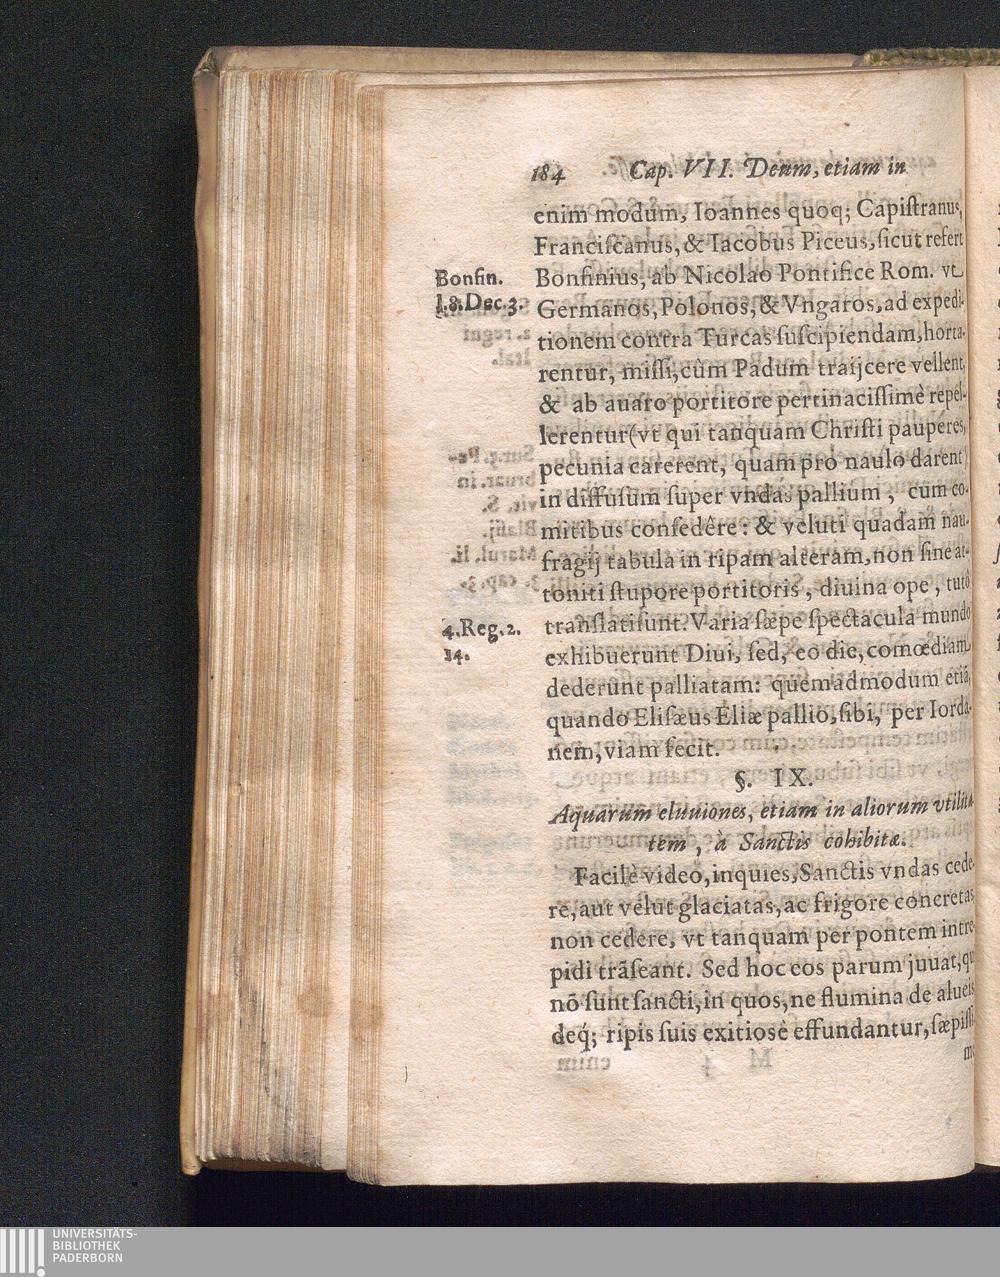 184 Cap. VII. Deum, etiam in
enim modum, Ioannes quoq; Capiſtranus,
Franciſcanus, & Iacobus Piceus, ſicut refert
Bonfin.
l.8.Dec.3.
Bonfinius, ab Nicolao Pontifice Rom. vt
Germanos, Polonos, & Vngaros, ad expedi-
tionem contra Turcas ſuſcipiendam, horta-
rentur, miſſi, cùm Padum traijcere vellent,
& ab auaro portitore pertinaciſſimè repel-
lerentur (vt qui tanquam Chriſti pauperes,
pecunia carerent, quam pro naulo darent)
in diffuſum ſuper vndas pallium, cum co-
mitibus conſedêre: & veluti quadam nau-
fragij tabula in ripam alteram, non ſine at-
toniti ſtupore portitoris, diuina ope, tutò
4.Reg.2.
14.
tranſlati ſunt. Varia ſæpe ſpectacula mundo
exhibuerunt Diui, ſed, eo die, comœdiam
dederunt palliatam: quemadmodum etiã,
quando Eliſæus Eliæ pallio, ſibi, per Iorda-
nem, viam fecit.
§. IX.
Aquarum eluuiones, etiam in aliorum vtilita-
tem, à Sanctis cohibitæ.
Facilè video, inquies, Sanctis vndas cede-
re, aut velut glaciatas, ac frigore concretas
non cedere, vt tanquam per pontem intre-
pidi trãſeant. Sed hoc eos parum juuat, qui
nō ſunt ſancti, in quos, ne flumina de alueis
deq́; ripis ſuis exitiosè effundantur, ſæpiſſi-
UNIVERSITÄTS-
BIBLIOTHEK
PADERBORN